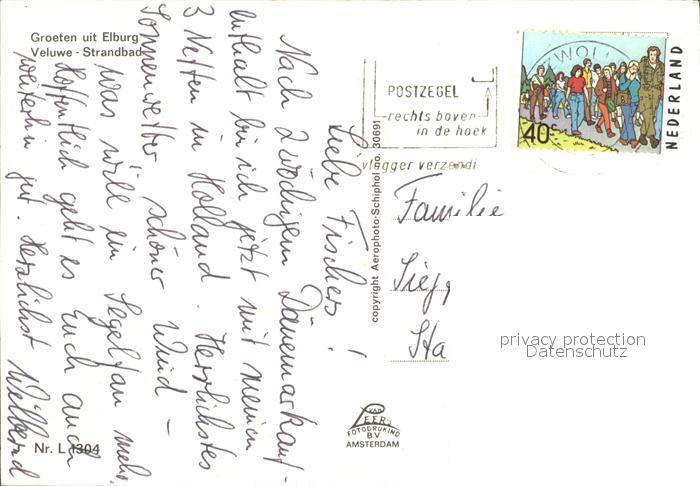 Groeten uit Elburg
Veluwe - Strandbad
Liebe Fischers!
Nach 2wöchigem Dänemarkauf-
enthalt bin ich jetzt mit meinen
3 Neffen in Holland. Herrlichstes
Sonnenwetter, schöner Wind -
was will ein Segelfan mehr.
Hoffentlich geht es Euch auch
weiterhin gut. Herzlichst
Nr. L 1304
copyright Aerophoto-Schiphol no. 30691
VAN LEER'S
FOTODRUKIND
B.V.
AMSTERDAM
POSTZEGEL
rechts boven
in de hoek
vlugger verzendi
40c
NEDERLAND
Familie
Sta
privacy protection
Datenschutz